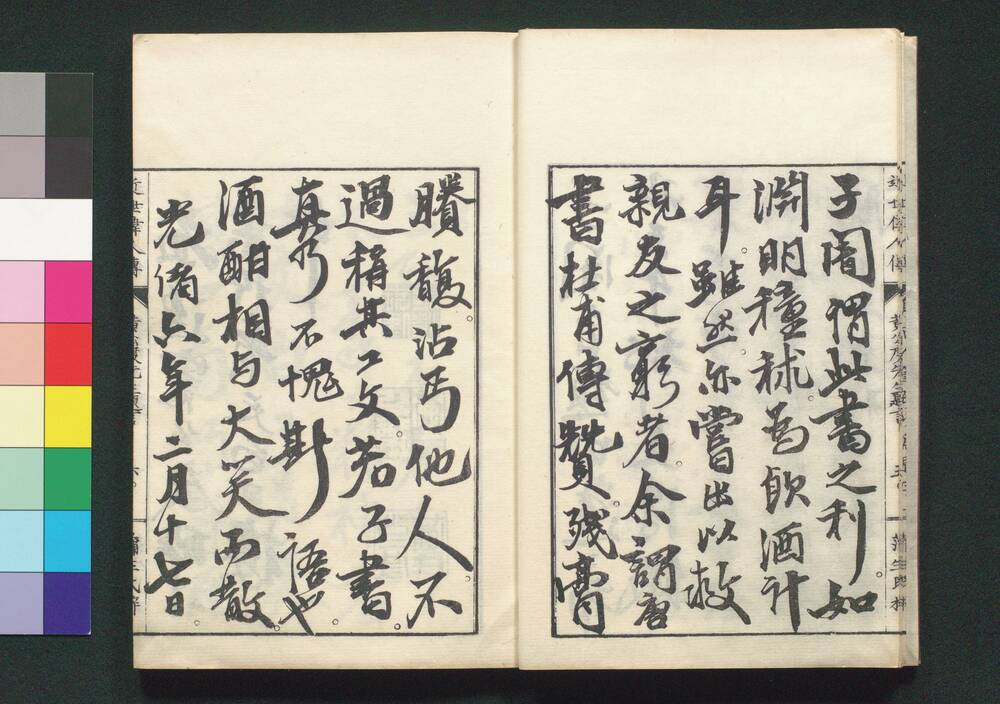 子闇謂此書之利。如
淵明種秫。為飲酒計
耳。雖然亦嘗出以救
親友之窮者。余謂唐
書杜甫傳贊。殘膏
賸馥。沾丐他人不
過稱其工文。若子書。
真乃不愧斯語也。
酒酣相与大笑而散。
光緒六年二月十七日
近世偉人傳